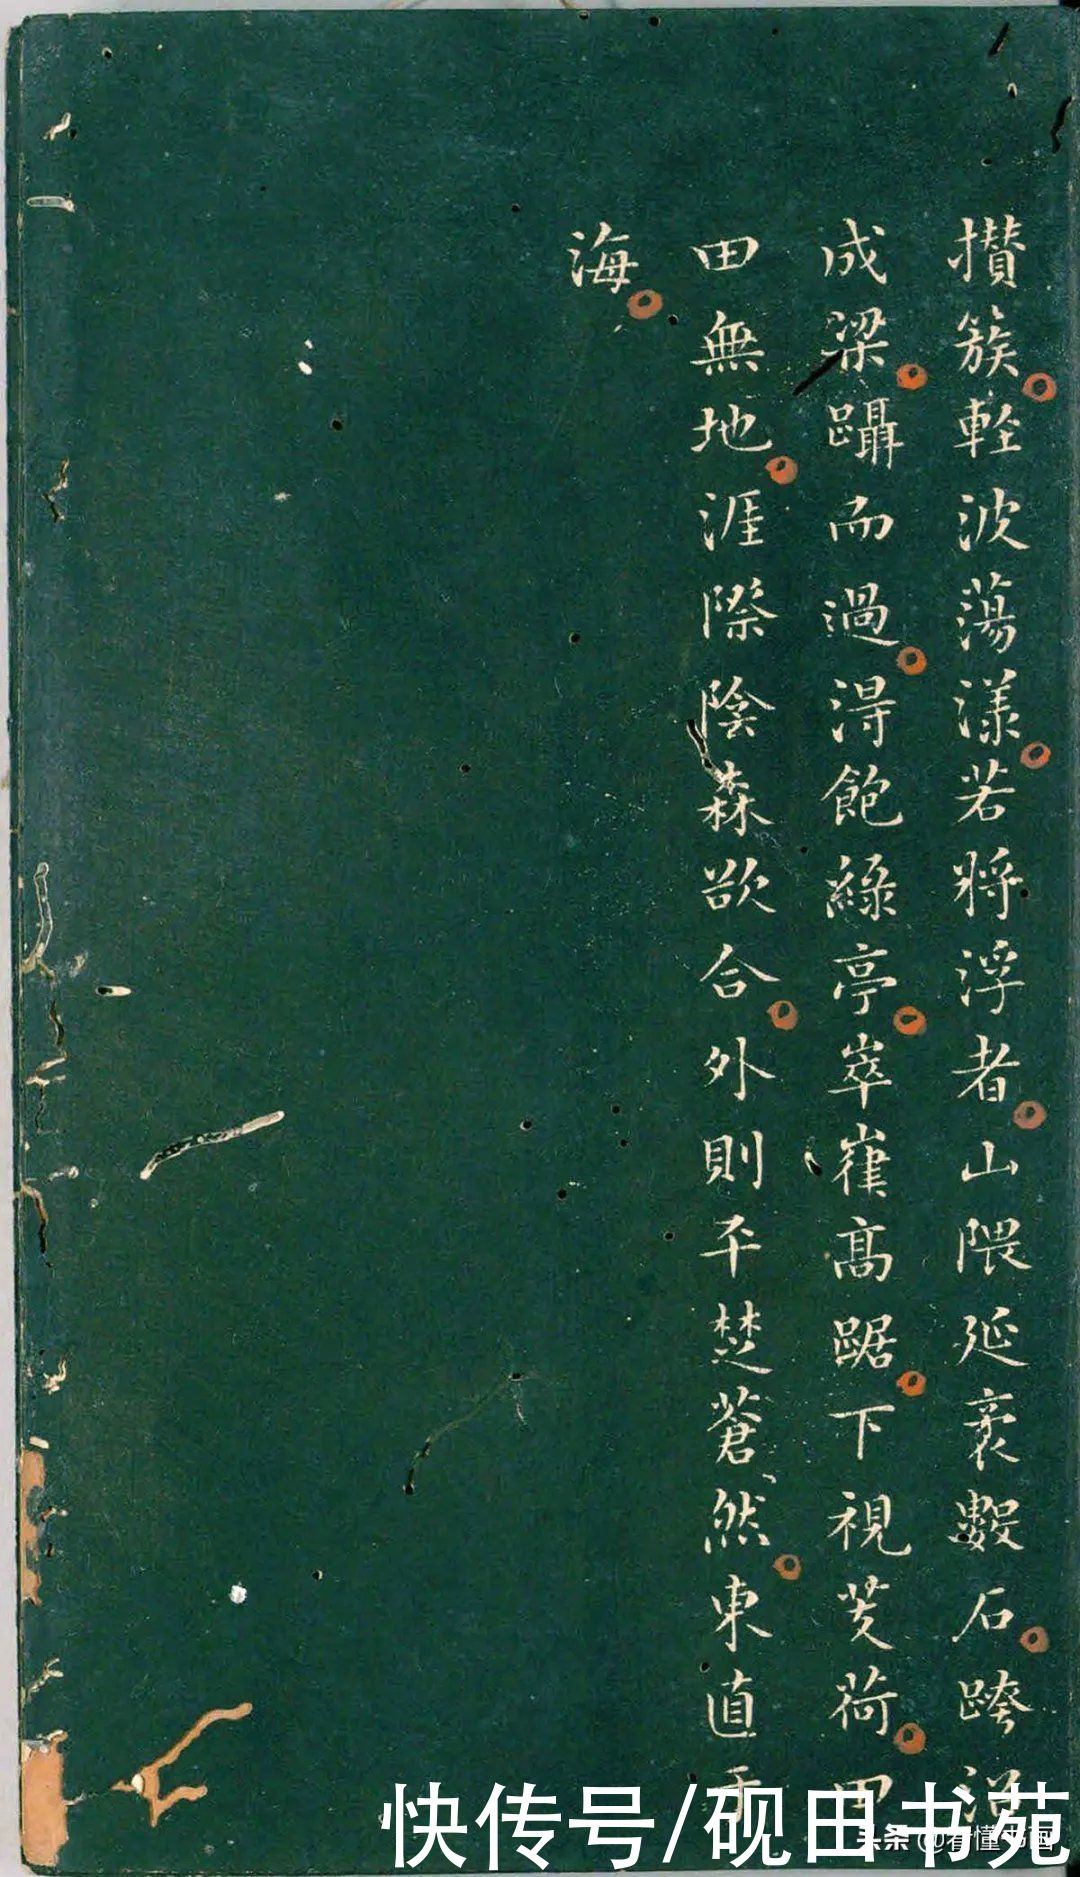 攅簇輕波蕩漾若将浮者山隈延袤數石跨沼
成梁躡而過淂飽綠亭崒嵂髙踞下視芰荷田
田無地涯際陰森欲合外則平楚蒼然東直于
海
快传号/砚田书苑
头条 @看懂书画